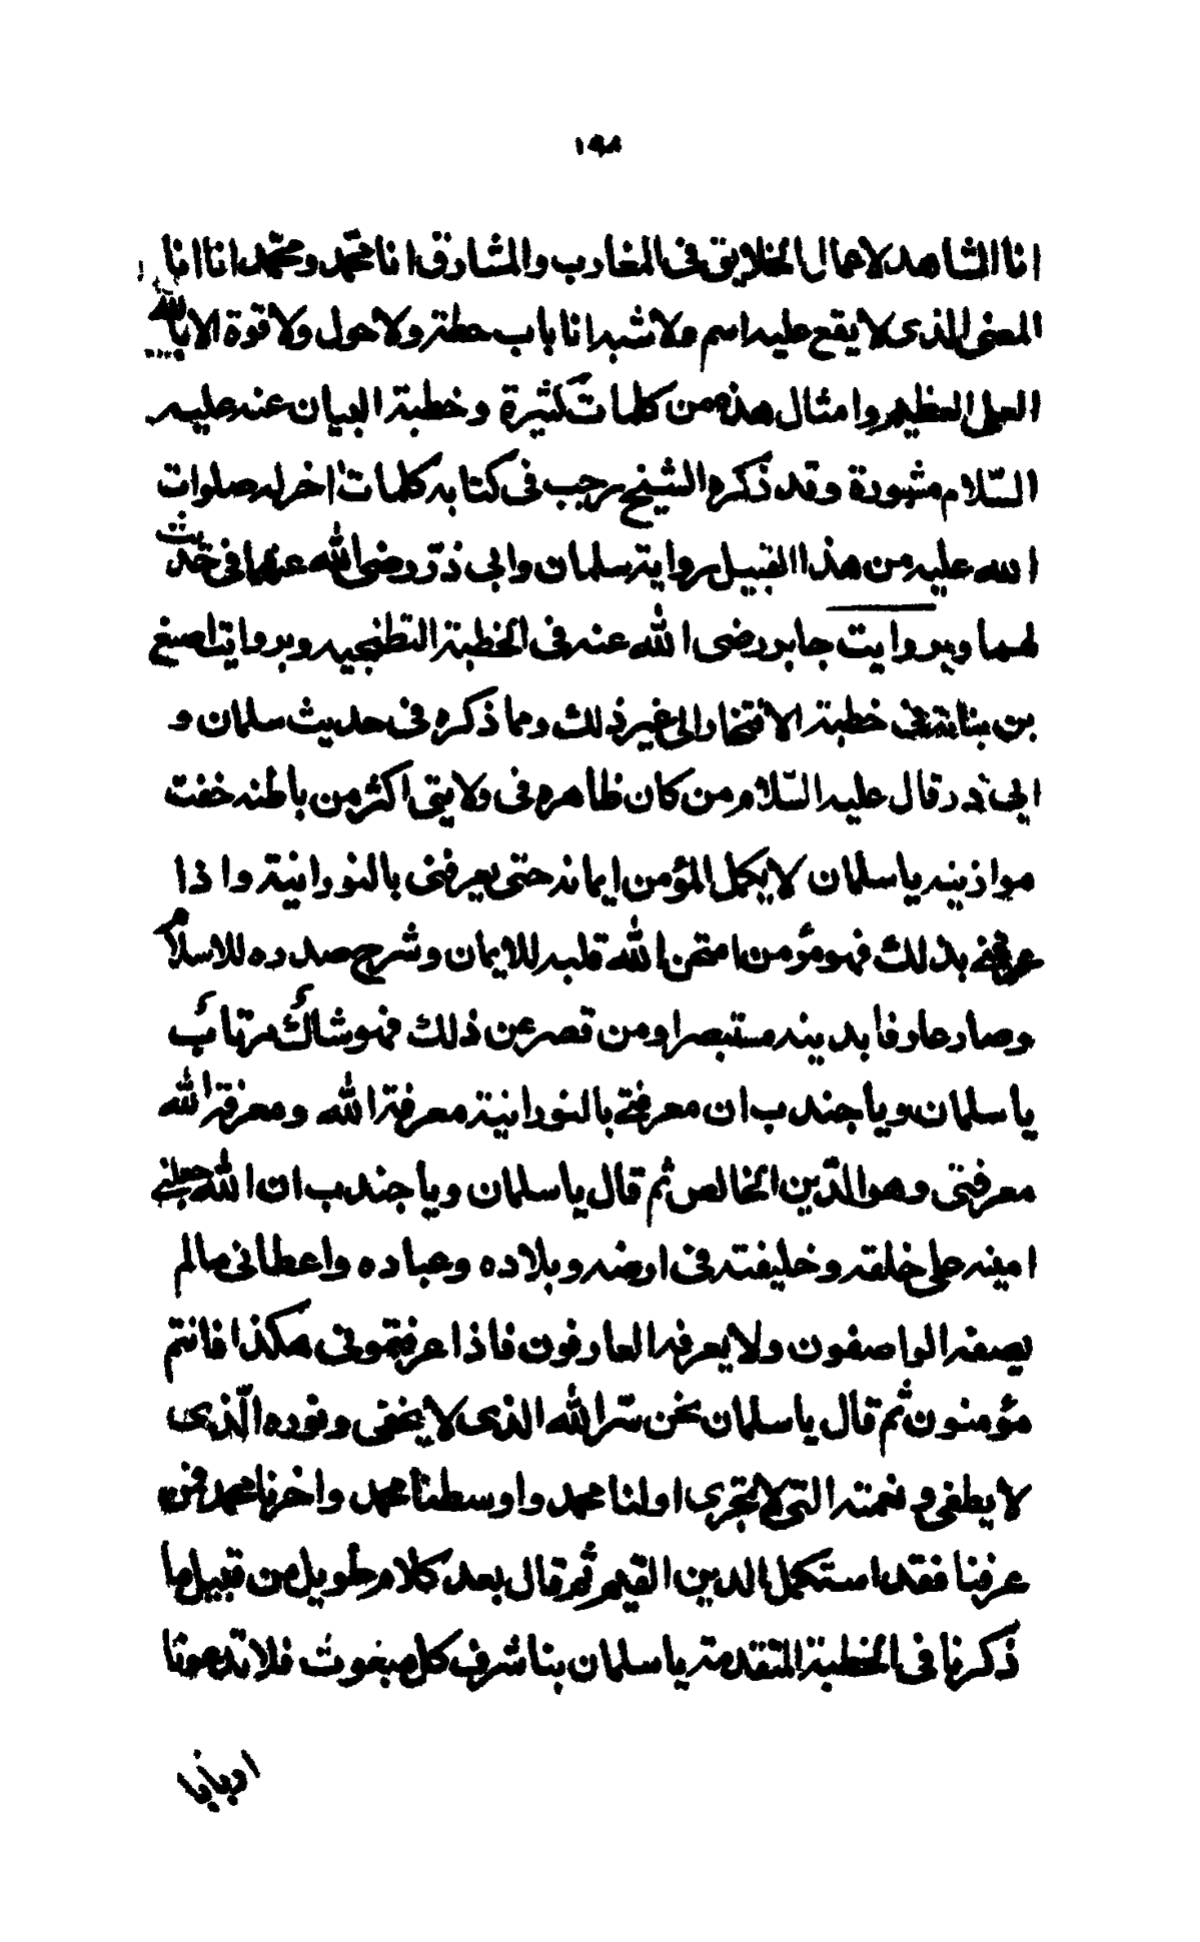 ١٩٨
انا الشاهد لاعمال الخلايق فى المغارب والمشارق انا محمّد ومحمّد انا انا
المعنى الذى لا يقع عليه اسم ولا شبه انا باب حطة ولا حول ولا قوة الا بالله
العلى العظيم وامثال هذه من كلمات كثيرة وخطبة البيان عنه عليه
السّلام مشهورة وقد ذكره الشيخ رجب فى كتابه كلمات اخر له صلوات
الله عليه من هذا القبيل برواية سلمان وابى ذرّ رضى الله عنهما فى حديث
لهما وبروايت جابر رضى الله عنه فى الخطبة التطنجيه وبرواية اصبغ
بن بناتة فى خطبة الافتخار الى غير ذلك ومما ذكره فى حديث سلمان و
ابى ذر قال عليه السّلام من كان ظاهره فى ولايتى اكثر من باطنه خفت
موازينه يا سلمان لا يكمل المؤمن ايمانه حتى يعرفنى بالنورانية واذا
عرفنى بذلك فهو مؤمن امتحن الله قلبه للايمان وشرح صدره للاسلام
وصار عارفا بدينه مستبصرا ومن قصر عن ذلك فهو شاكّ مرتاب
يا سلمان ويا جندب ان معرفتى بالنورانية معرفة الله ومعرفة الله
معرفتى وهو الدّين الخالص ثم قال يا سلمان ويا جندب ان الله جعلنى
امينه على خلقه وخليفته فى ارضه وبلاده وعباده واعطانى مالم
يصفه الواصفون ولا يعرفه العارفون فاذا عرفتمونى هكذا فانتم
مؤمنون ثم قال يا سلمان نحن سرّ الله الذى لا يخفى ونوره الّذى
لا يطفى ونعمته التى لا تجزى اولنا محمد واوسطنا محمد واخرنا محمد فمن
عرفنا فقد استكمل الدين القيم ثم قال بعد كلام طويل من قبيل ما
ذكرنا فى الخطبة المتقدمة يا سلمان بنا شرف كل مبعوث فلا تدعونا
اربابا